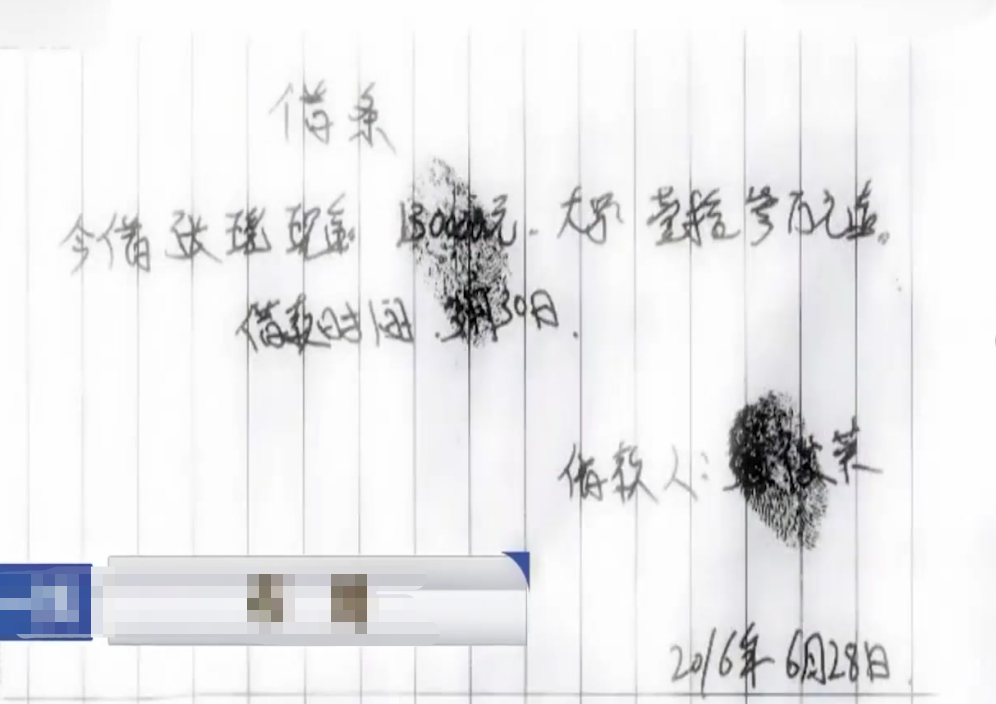 借条
今借张瑶现金 130000元. 大写 壹拾叁万元整。
借款时间. 3月30日.
借款人:
2016年6月28日.